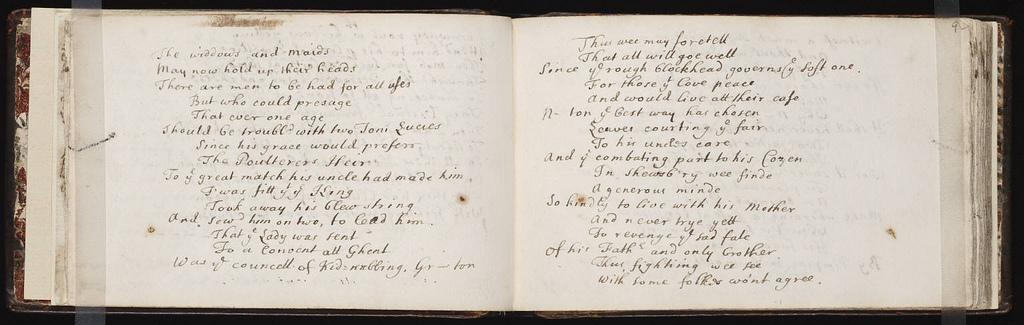 The widdows and maids
May now hold up their heads
There are men to be had for all uses
But who could presage
That ever one age
Should be troubl'd with two Toni Lucies
Since his grace would preferr
The Poulterers Heir
To yͤ great match his uncle had made him
T'was fitt yͭ yͤ King
Took away his blew string
And sow'd him on two, to lead him.
That yͤ Lady was sent
To a Convent att Ghent
Was yͤ councell of Kid=nabbing. Gr—ton
9
Thus wee may foretell
That all will goe well
Since yͤ rough blockhead governs yͤ soft one.
For those yͭ love peace
And would live att their ease
N- ton yͤ best way has chosen
Leaves courting yͤ fair
To his uncles care
And yͤ combating part to his Cozen
In shewsb'ry wee finde
A generous minde
So kindly to live with his Mother
And never trye yett
To revenge yͤ sad fate
Of his Fathʳ and only Brother
Thus fighting wee see
With some folkes wont agree.